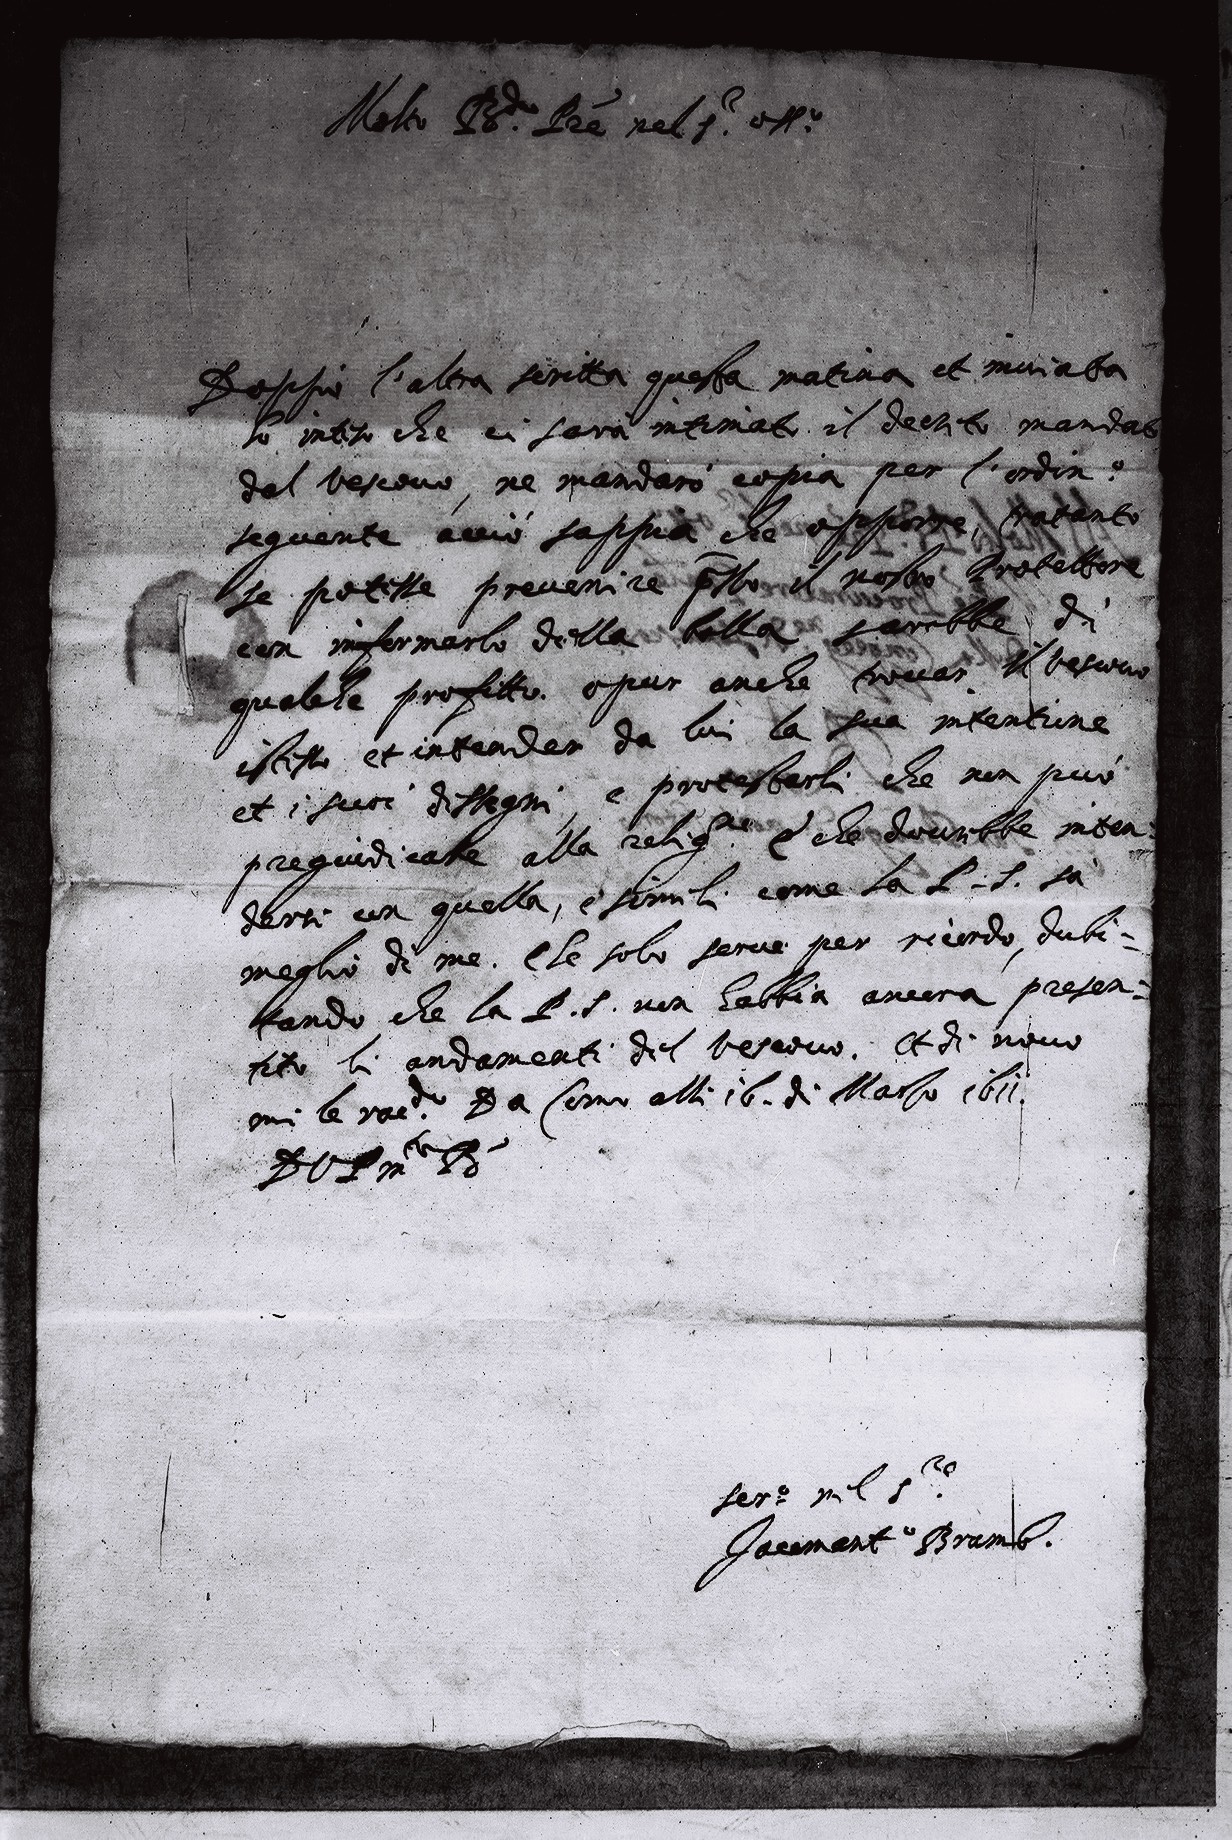 Molto R.do Pre nel S.r oss.o
Doppò l'altra scritta questa matina et inviata
hò inteso che ci sarà intimato il decreto mandato
dal Vescovo, ne mandarò copia per l'ordin.o
seguente acciò sappia che opporre, tratanto
se potesse prevenire il nostro Protettore
con informarlo della bolla sarebbe di
qualche profitto. opur anche trovar il Vescovo
istesso et intender da lui la sua intentione
et i suoi dissegni, e protestarli che non può
pregiudicare alla relig.ne e che dovrebbe inten-
dersi con quella, e simili come la P. S. sà
meglio di me. Che solo serve per ricordo, dubi-
tando che la P. S. non habbia ancora presen-
tito li andamenti del Vescovo. Et di novo
mi le racd.o Da Como alli 16. di Marzo 1611.
D V P m.to R.
ser.o nel S.re
Jacomant.o Bramb.